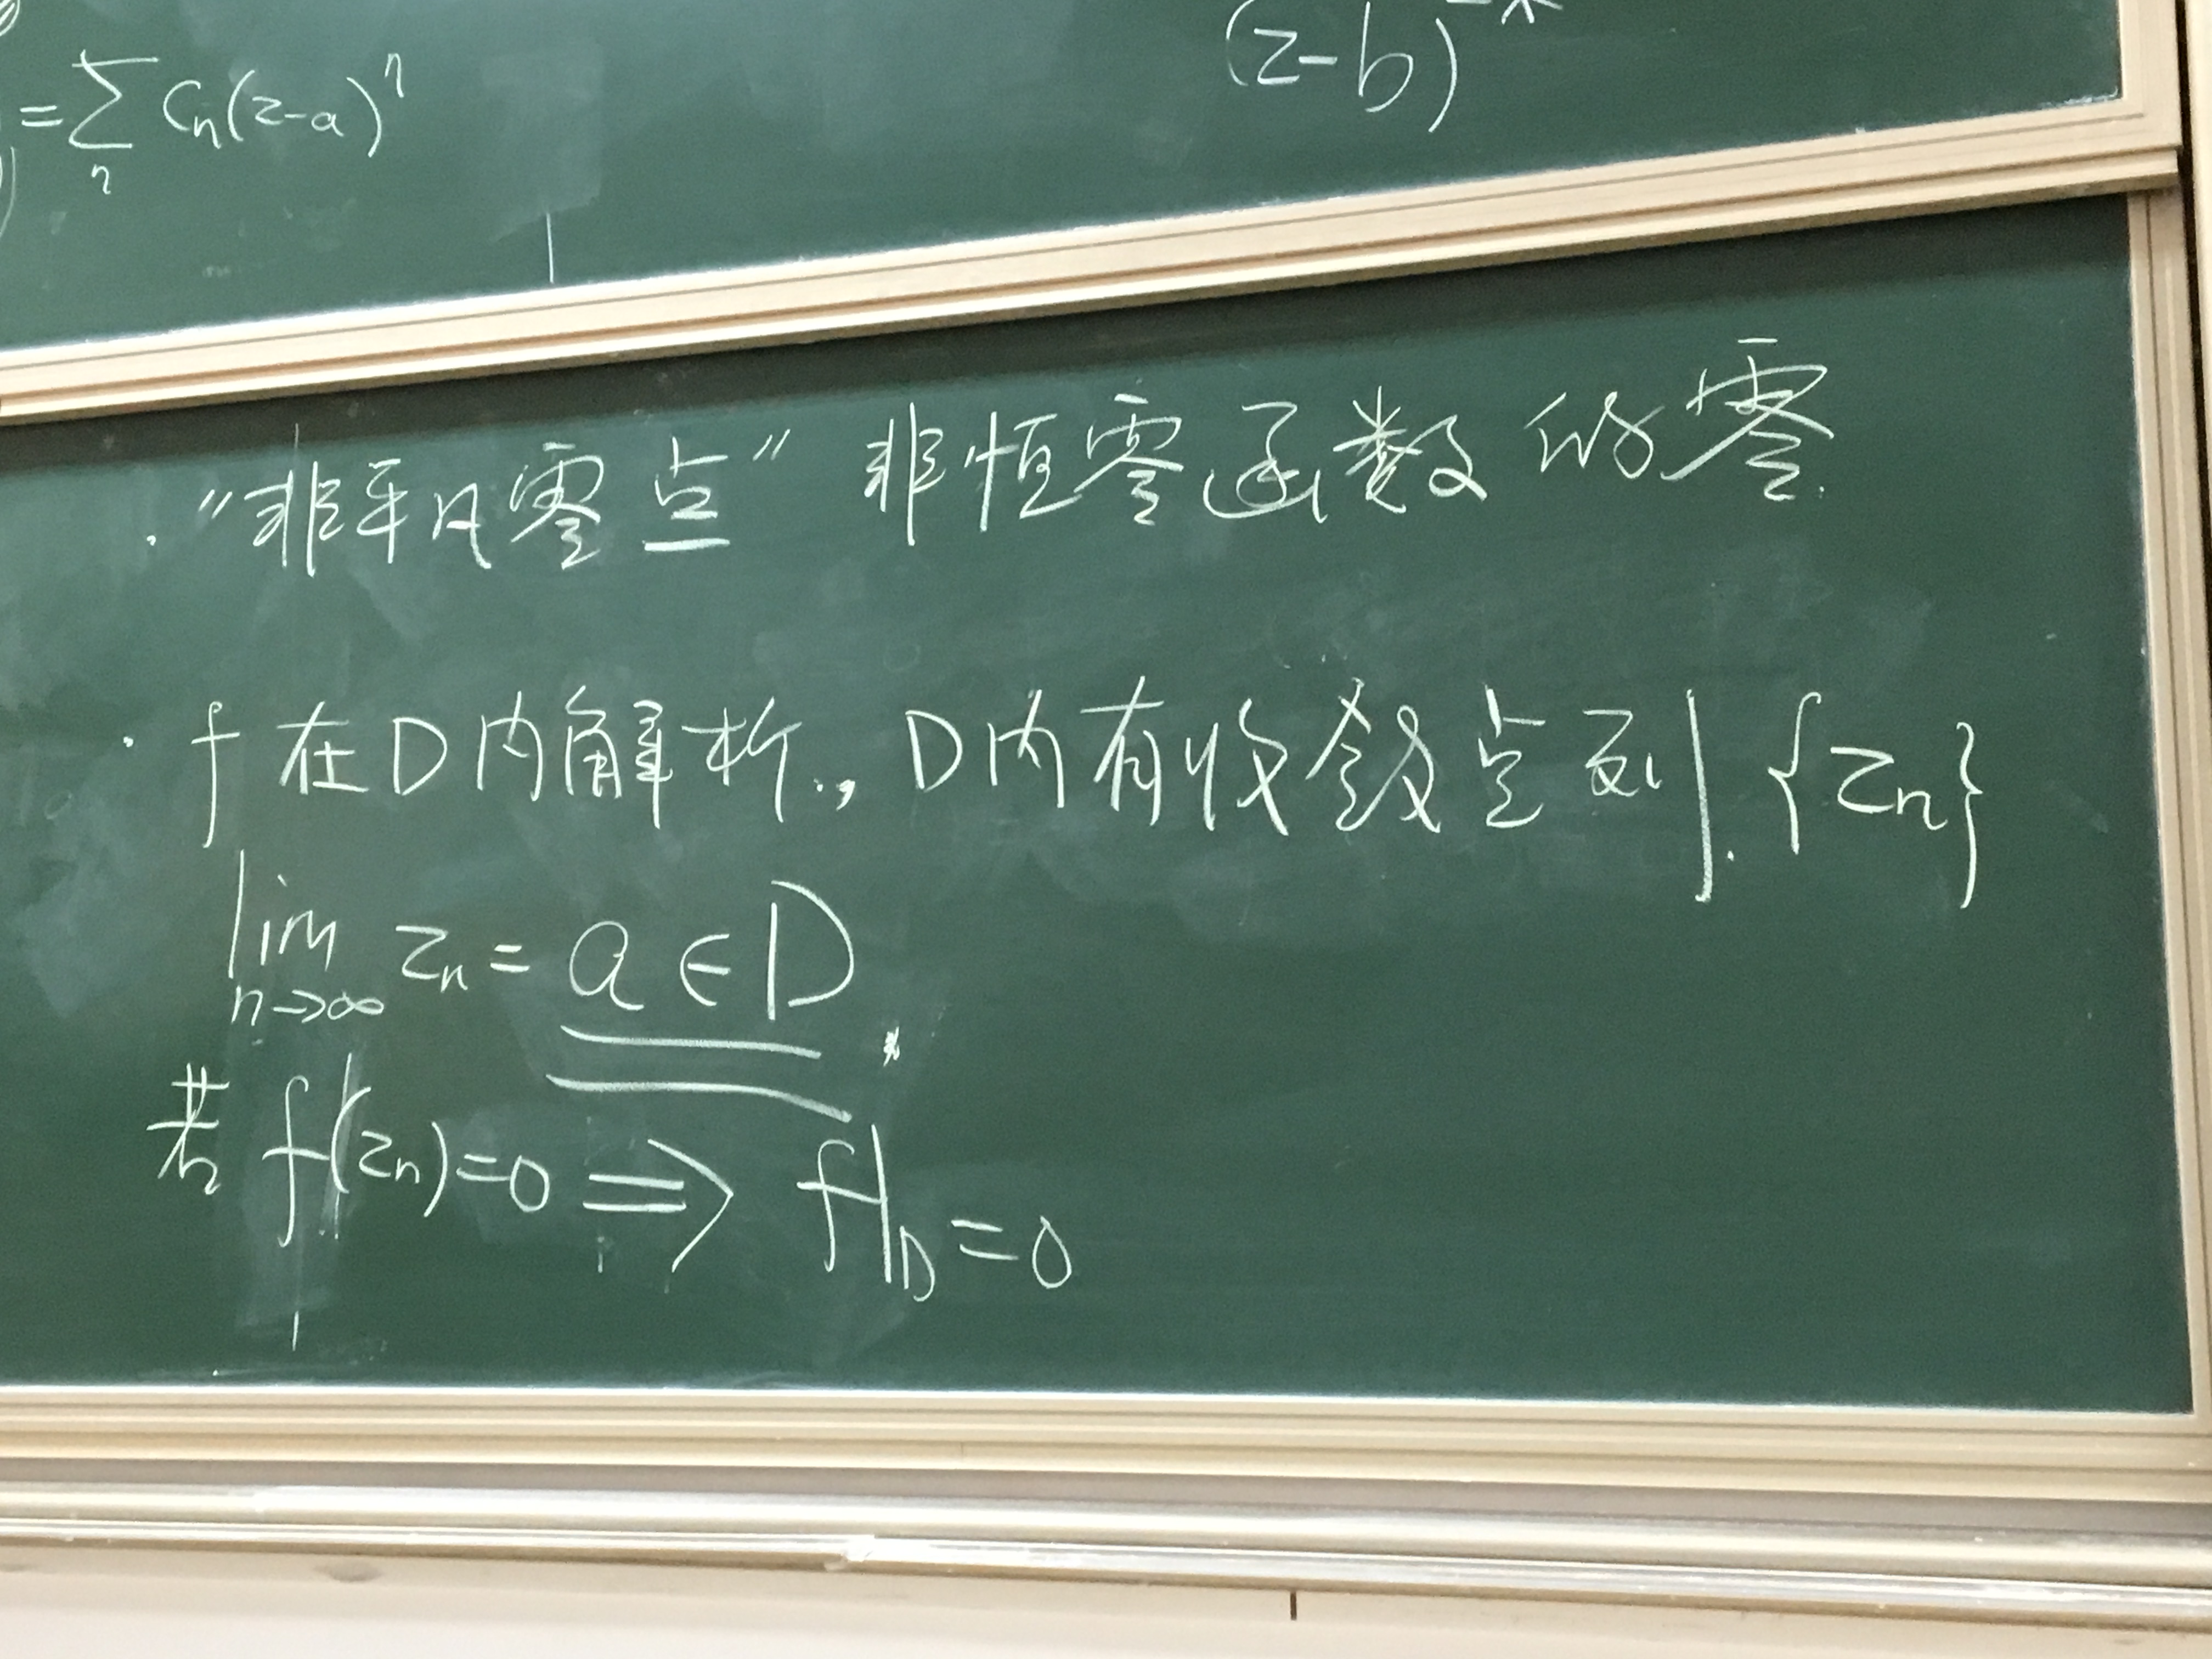 = ∑ₙ Cₙ(z-a)ⁿ
(z-b)
· "非平凡零点" 非恒零函数的零
· f 在D内解析, D内有收敛点列 {zₙ}
lim n→∞ zₙ = a ∈ D
若 f(zₙ)=0 ⟹ f|_D = 0